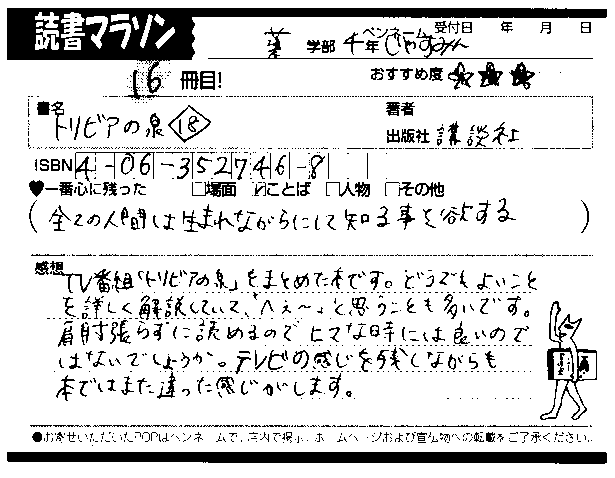 読書マラソン
薬 学部 4年 ペンネーム じゃすみん 受付日 年 月 日
16 冊目! おすすめ度 ☆☆☆
書名 トリビアの泉 18 著者
出版社 講談社
ISBN 4-06-352746-8
♥一番心に残った □場面 ☑ことば □人物 □その他
(全ての人間は生まれながらにして知る事を欲する)
感想
TV番組「トリビアの泉」をまとめた本です。どうでもよいこと
を詳しく解説していて、「へぇ〜」と思うことも多いです。
肩肘張らずに読めるのでヒマな時には良いので
はないでしょうか。テレビの感じを残しながらも
本ではまた違った感じがします。
●お寄せいただいたPOPはペンネームで、店内で掲示、ホームページおよび宣伝物への転載をご了承ください。